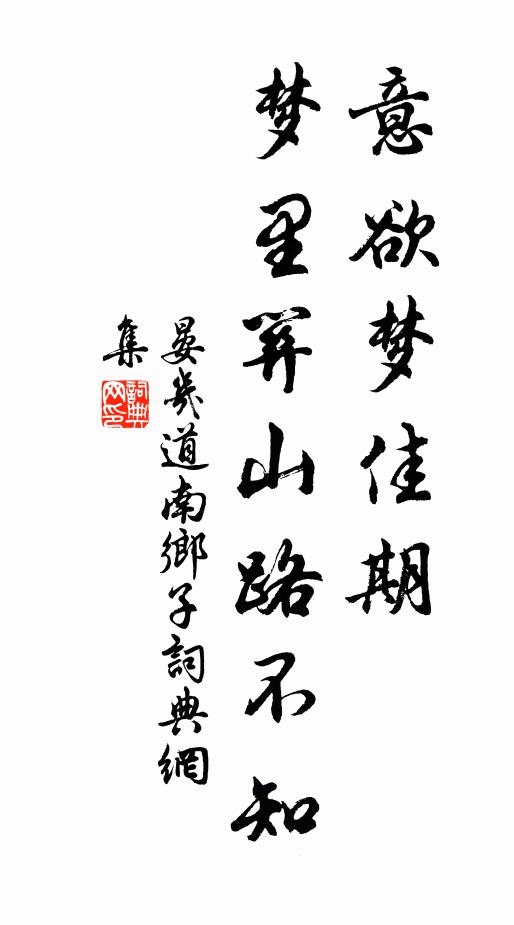 意欲梦佳期
梦里关山路不知
晏幾道南鄉子詞典網
集
詞典网印